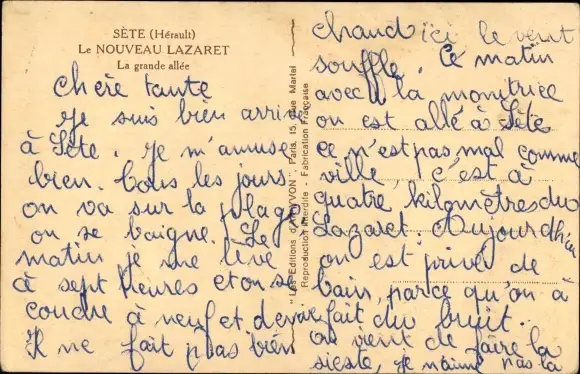 SÈTE (Hérault)
Le NOUVEAU LAZARET
La grande allée
chère tante
Je suis bien arrivé
à Sète. Je m'amuse
bien. Tous les jours
on va sur la plage
on se baigne. Le
matin je me lève
à sept heures et on se
couche à neuf et demie
Il ne fait pas bien
"Les Editions d'Art YVON", Paris, 15, rue Martel
Reproduction Interdite - Fabrication Française
chaud ici le vent
souffle. Ce matin
avec la monitrice
on est allé à Sète
ce n'est pas mal comme
ville, c'est à
quatre kilomètres du
Lazaret. Aujourd'hui
on est privé de
bain, parce qu'on à
fait du bruit.
on vient de faire la
sieste, je n'aime pas la